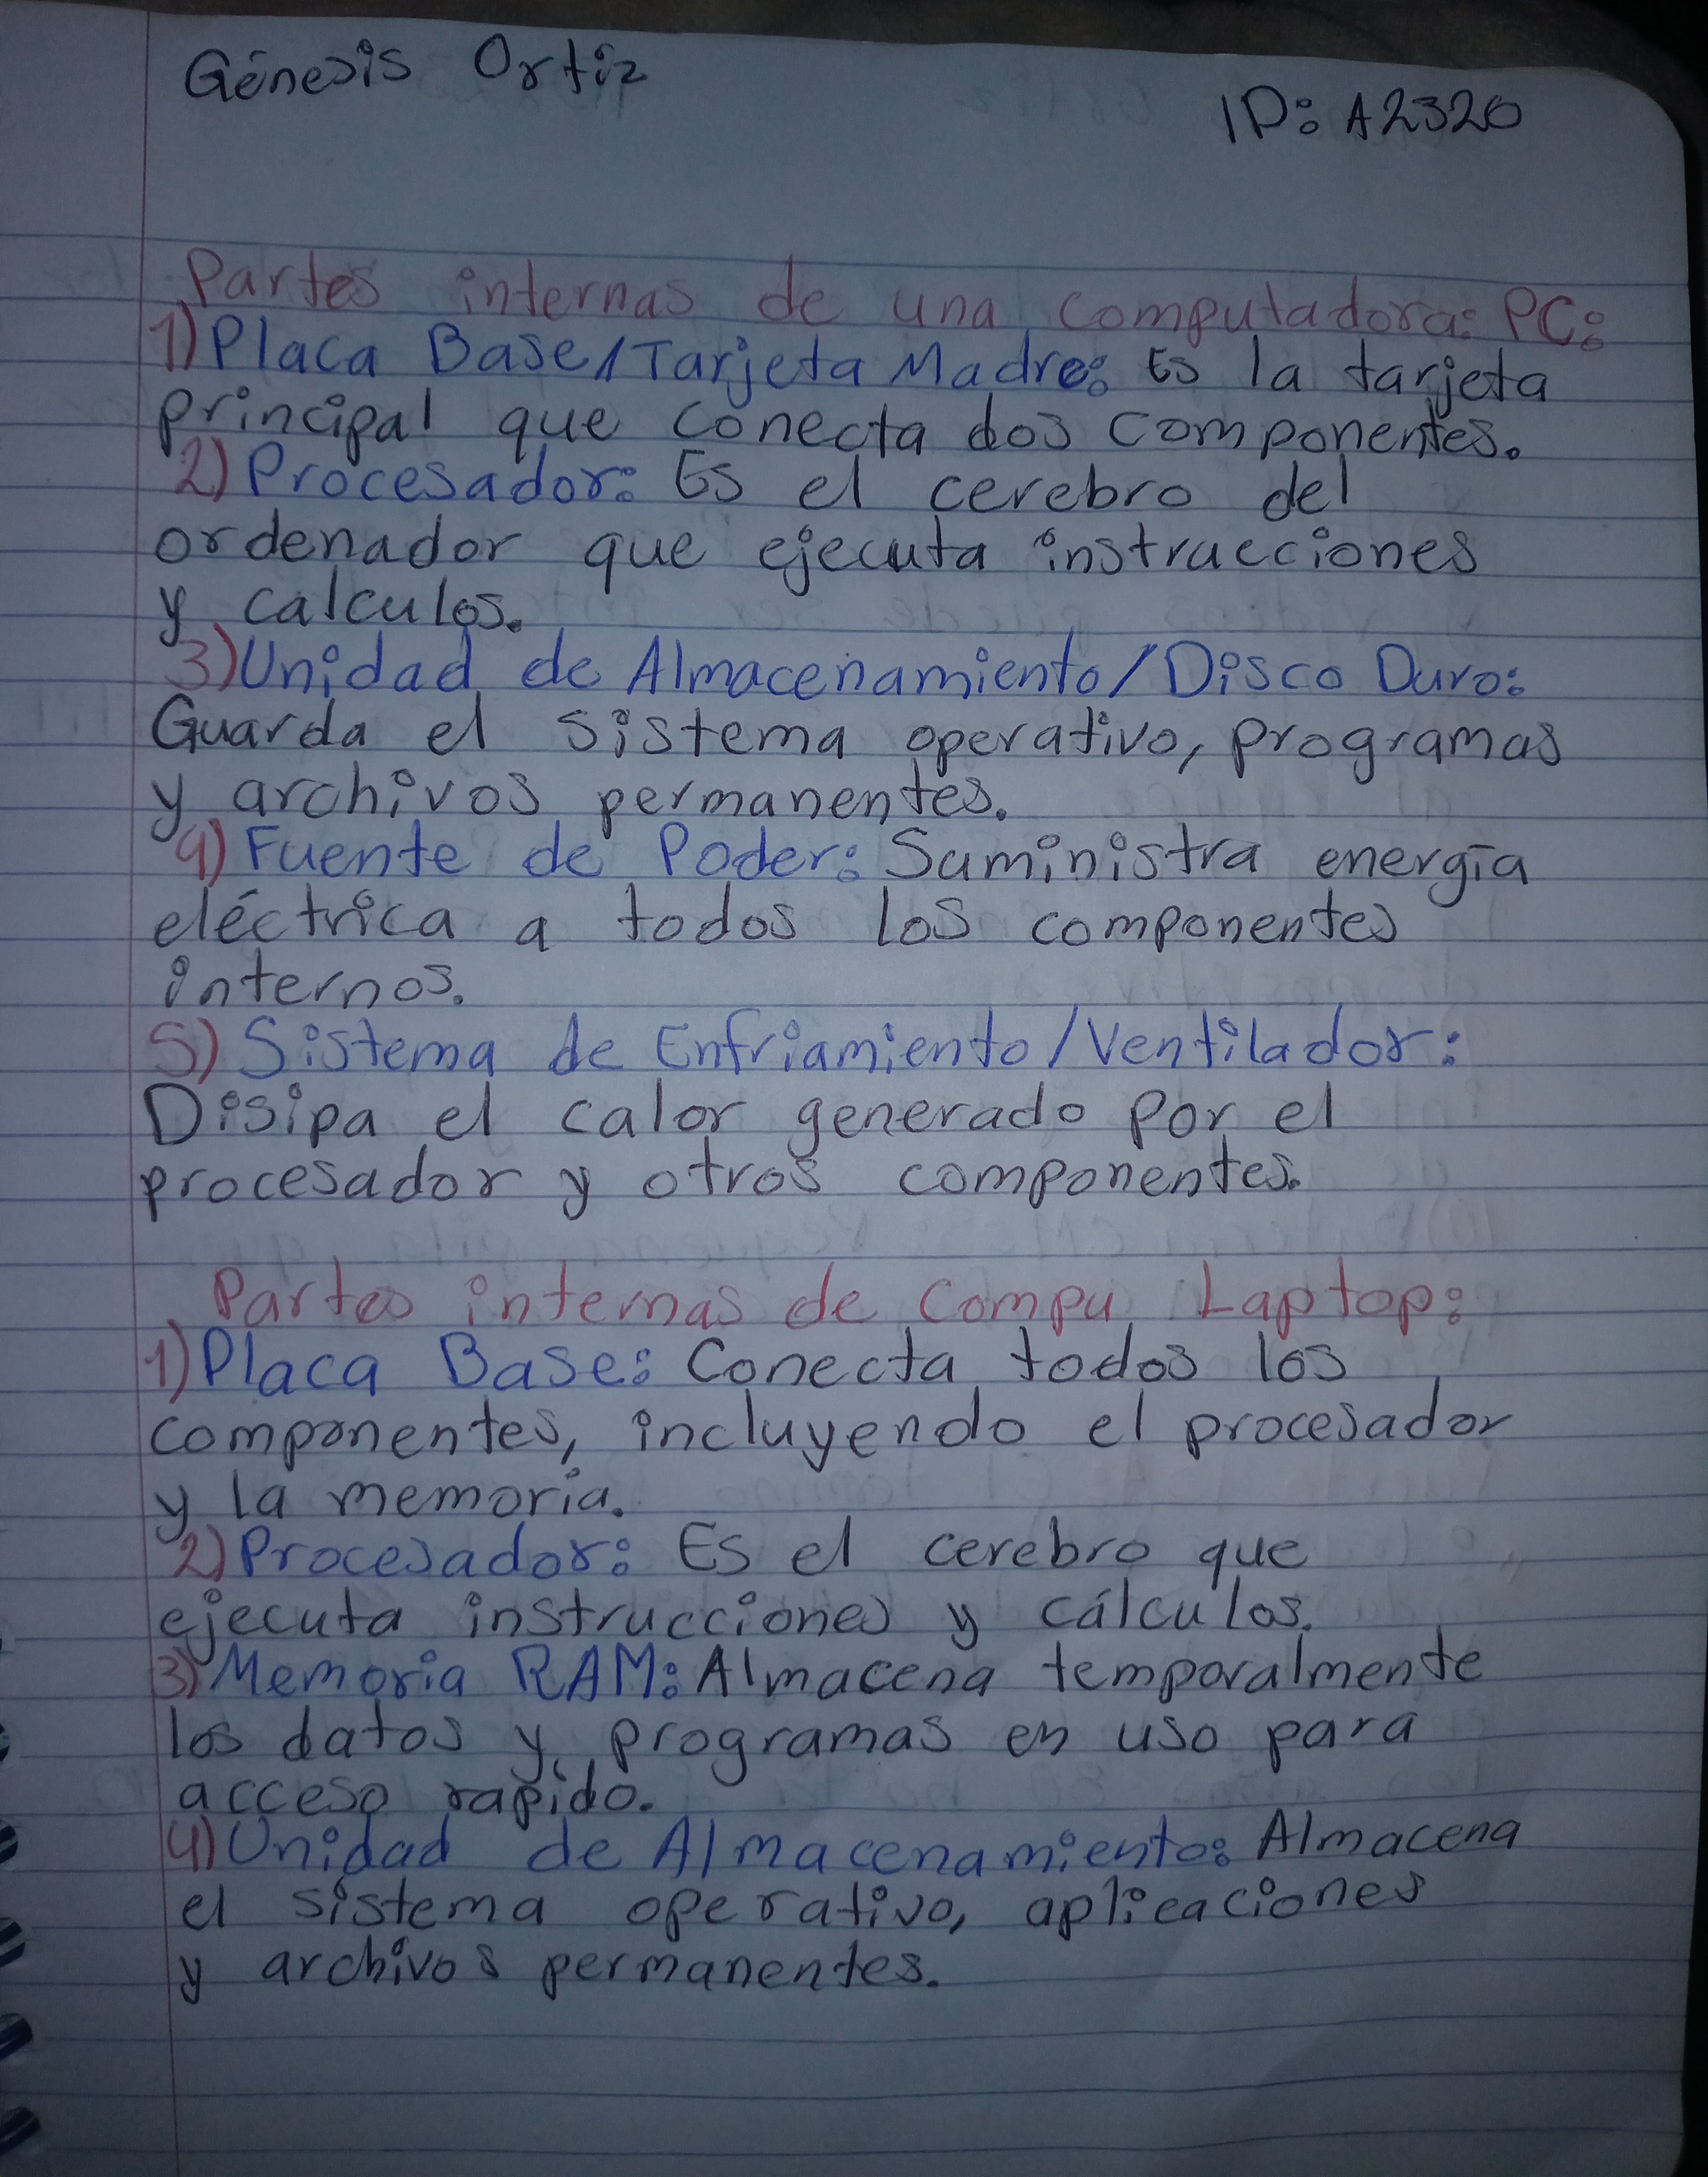 Génesis Ortiz
ID: A2320
Partes internas de una computadora: PC:
1) Placa Base/Tarjeta Madre: Es la tarjeta
principal que conecta dos componentes.
2) Procesador: Es el cerebro del
ordenador que ejecuta instrucciones
y calculos.
3) Unidad de Almacenamiento/Disco Duro:
Guarda el sistema operativo, programas
y archivos permanentes.
4) Fuente de Poder: Suministra energía
eléctrica a todos los componentes
internos.
5) Sistema de Enfriamiento/Ventilador:
Disipa el calor generado por el
procesador y otros componentes.
Partes internas de Compu Laptop:
1) Placa Base: Conecta todos los
componentes, incluyendo el procesador
y la memoria.
2) Procesador: Es el cerebro que
ejecuta instrucciones y cálculos.
3) Memoria RAM: Almacena temporalmente
los datos y programas en uso para
acceso rapido.
4) Unidad de Almacenamiento: Almacena
el sistema operativo, aplicaciones
y archivos permanentes.